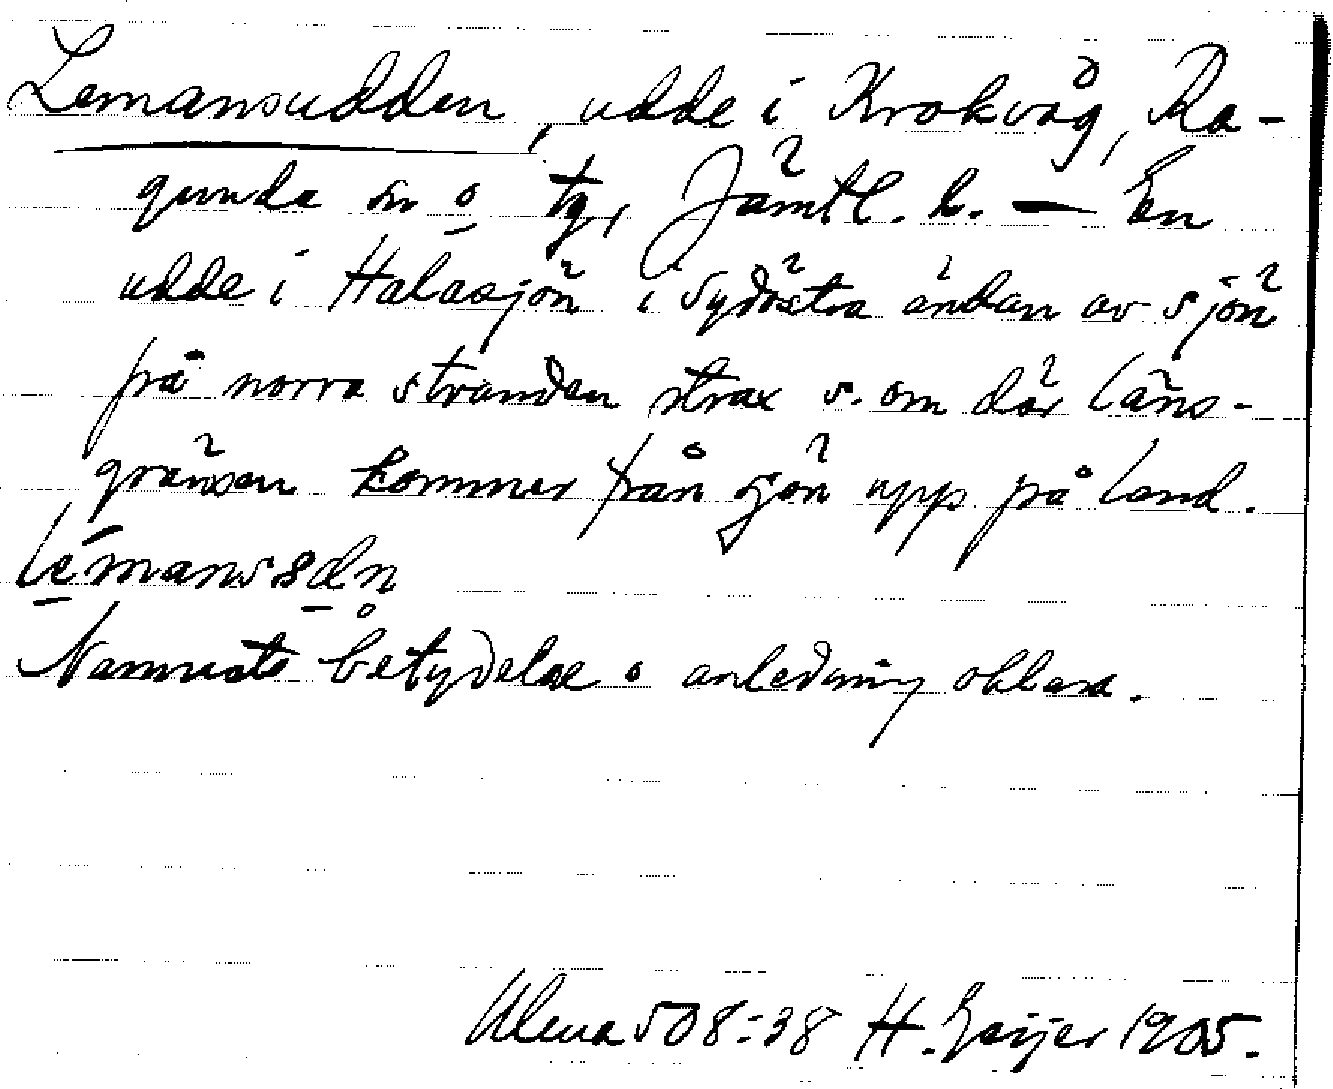 Lemansudden, udde i Krokvåg, Ra-
gunda sn o tg, Jämtl. l. — En
udde i Halasjön i sydöstra ändan av sjön
på norra stranden strax s. om där läns-
gränsen kommer från sjön upp på land.
Namnets betydelse o anledning oklara.
Ulma 508:38 H. Geijer 1905.